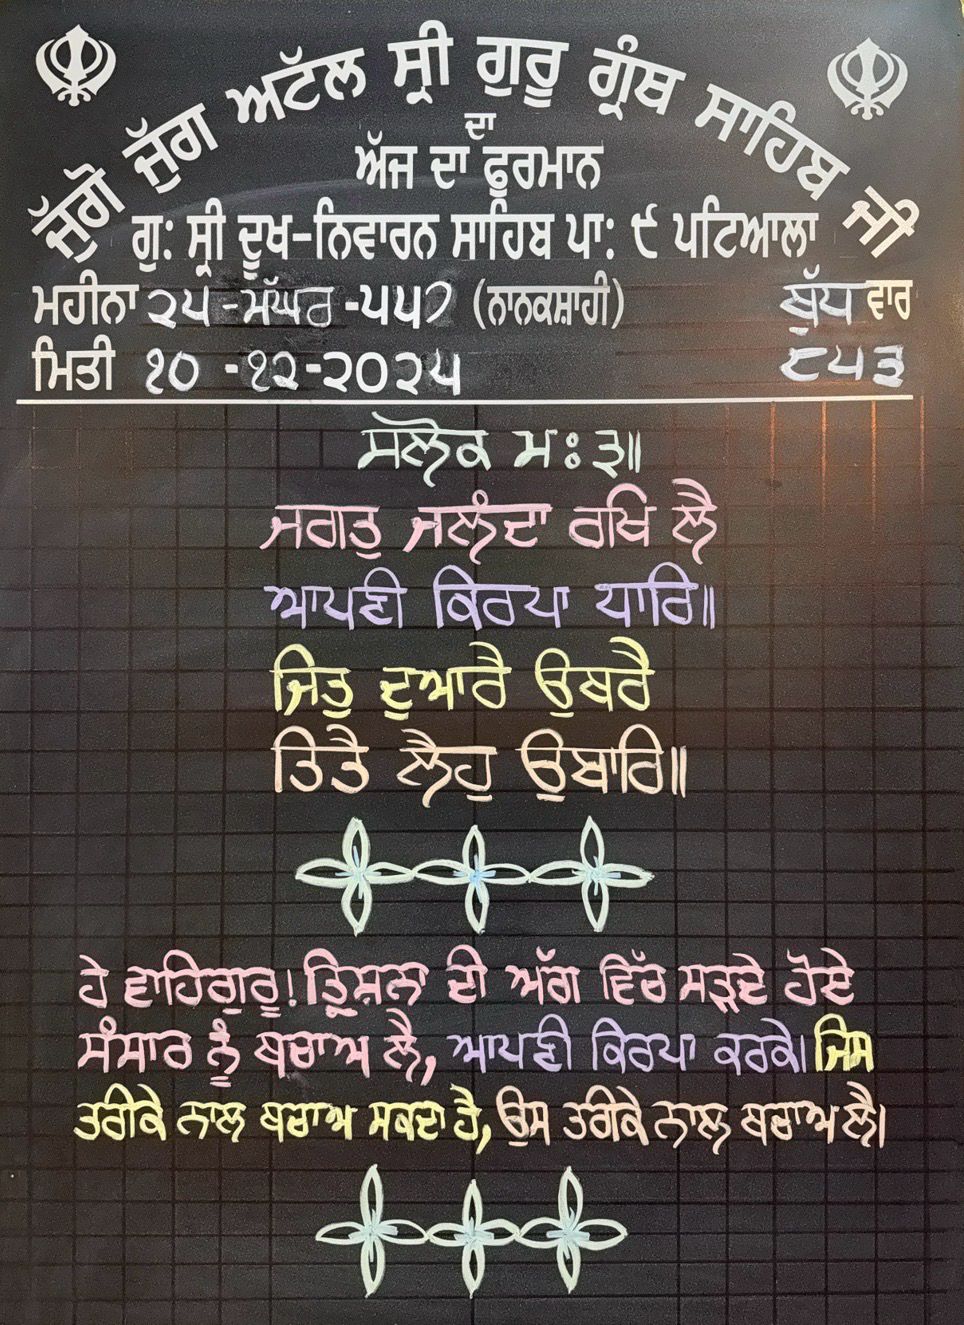 ਜੁੱਗੋ ਜੁੱਗ ਅਟੱਲ ਸ੍ਰੀ ਗੁਰੂ ਗ੍ਰੰਥ ਸਾਹਿਬ ਜੀ
ਦਾ
ਅੱਜ ਦਾ ਫੁਰਮਾਨ
ਗੁ: ਸ੍ਰੀ ਦੂਖ-ਨਿਵਾਰਨ ਸਾਹਿਬ ਪਾ: ੯ ਪਟਿਆਲਾ
ਮਹੀਨਾ ੨੫-ਮੱਘਰ-੫੫੭ (ਨਾਨਕਸ਼ਾਹੀ) ਬੁੱਧ ਵਾਰ
ਮਿਤੀ ੧੦-੧੨-੨੦੨੫ ੮੫੩
ਸਲੋਕ ਮਃ ੩॥
ਜਗਤੁ ਜਲੰਦਾ ਰਖਿ ਲੈ
ਆਪਣੀ ਕਿਰਪਾ ਧਾਰਿ॥
ਜਿਤੁ ਦੁਆਰੈ ਉਬਰੈ
ਤਿਤੈ ਲੈਹੁ ਉਬਾਰਿ॥
ਹੇ ਵਾਹਿਗੁਰੂ! ਤ੍ਰਿਸ਼ਨਾ ਦੀ ਅੱਗ ਵਿੱਚ ਸੜਦੇ ਹੋਏ
ਸੰਸਾਰ ਨੂੰ ਬਚਾਅ ਲੈ, ਆਪਣੀ ਕਿਰਪਾ ਕਰਕੇ। ਜਿਸ
ਤਰੀਕੇ ਨਾਲ ਬਚਾਅ ਸਕਦਾ ਹੈ, ਉਸ ਤਰੀਕੇ ਨਾਲ ਬਚਾਅ ਲੈ।